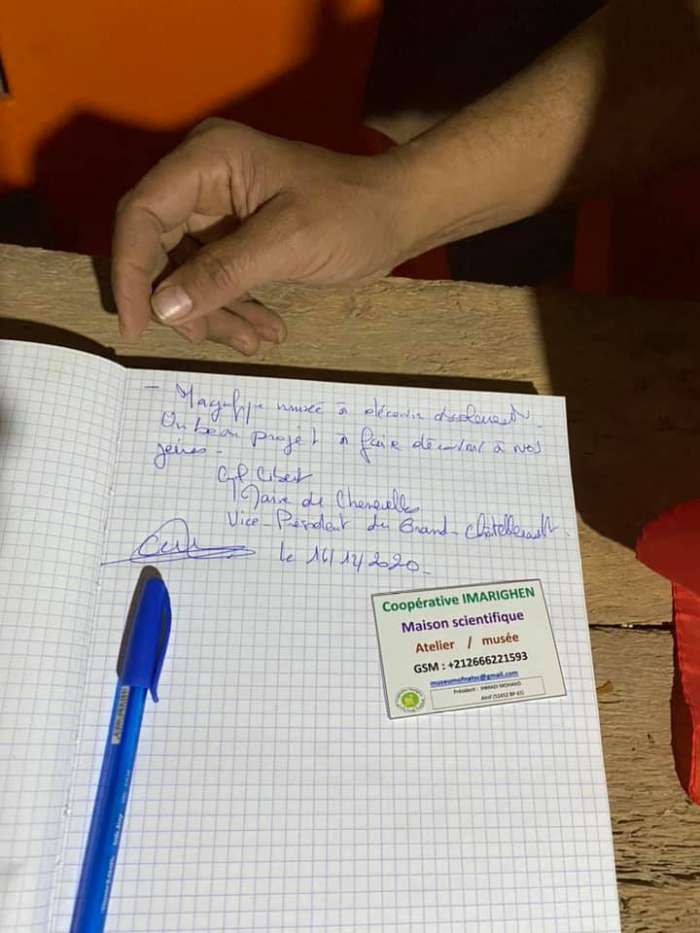 - Magnifique musée à découvrir absolument.
Un beau projet à faire découvrir à nos
jeunes.
Maire de Chenevelles
Vice-Président du Grand-Châtellerault.
le 2020.
Coopérative IMARIGHEN
Maison scientifique
Atelier / musée
GSM : +212666221593
museumofnatsc@gmail.com
Président :